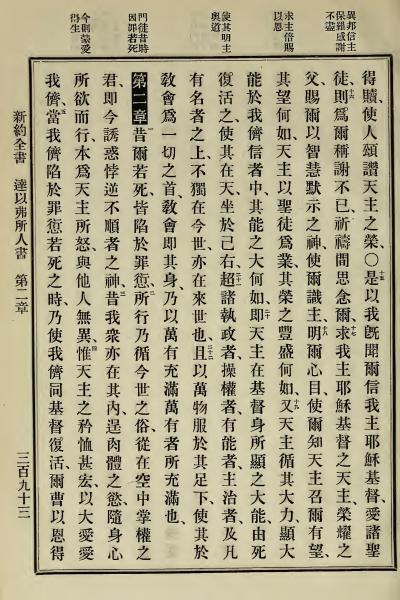 異邦信主
保羅感謝
不盡
求主倍賜
以恩
使其明主
奧道
門徒昔時
因罪若死
今則蒙愛
得生
得贖、使人頌讚天主之榮、〇十五是以我旣聞爾信我主耶穌基督、愛諸聖
徒、十六則爲爾稱謝不已、祈禱間思念爾、十七求我主耶穌基督之天主、榮耀之
父、賜爾以智慧默示之神、使爾識主、十八明爾心目、使爾知天主召爾有望、
其望何如、天主以聖徒爲業、其榮之豐盛何如、十九又天主循其大力、顯大
能於我儕信者中、其能之大何如、二十卽天主在基督身所顯之大能、由死
復活之、使其在天坐於己右、二一超諸執政者、操權者、有能者、主治者、及凡
有名者之上、不獨在今世、亦在來世也、二二且以萬物服於其足下、使其於
敎會爲一切之首、二三敎會卽其身、乃以萬有充滿萬有者所充滿也、
第二章 一昔爾若死、皆陷於罪愆、二所行乃循今世之俗、從在空中掌權之
君、卽今誘惑悖逆不順者之神、三昔我衆亦在其內、逞肉體之慾、隨身心
所欲而行、本爲天主所怒、與他人無異、四惟天主之矜恤甚宏、以大愛愛
我儕、五當我儕陷於罪愆若死之時、乃使我儕同基督復活、爾曹以恩得
新約全書 達以弗所人書 第二章 三百九十三